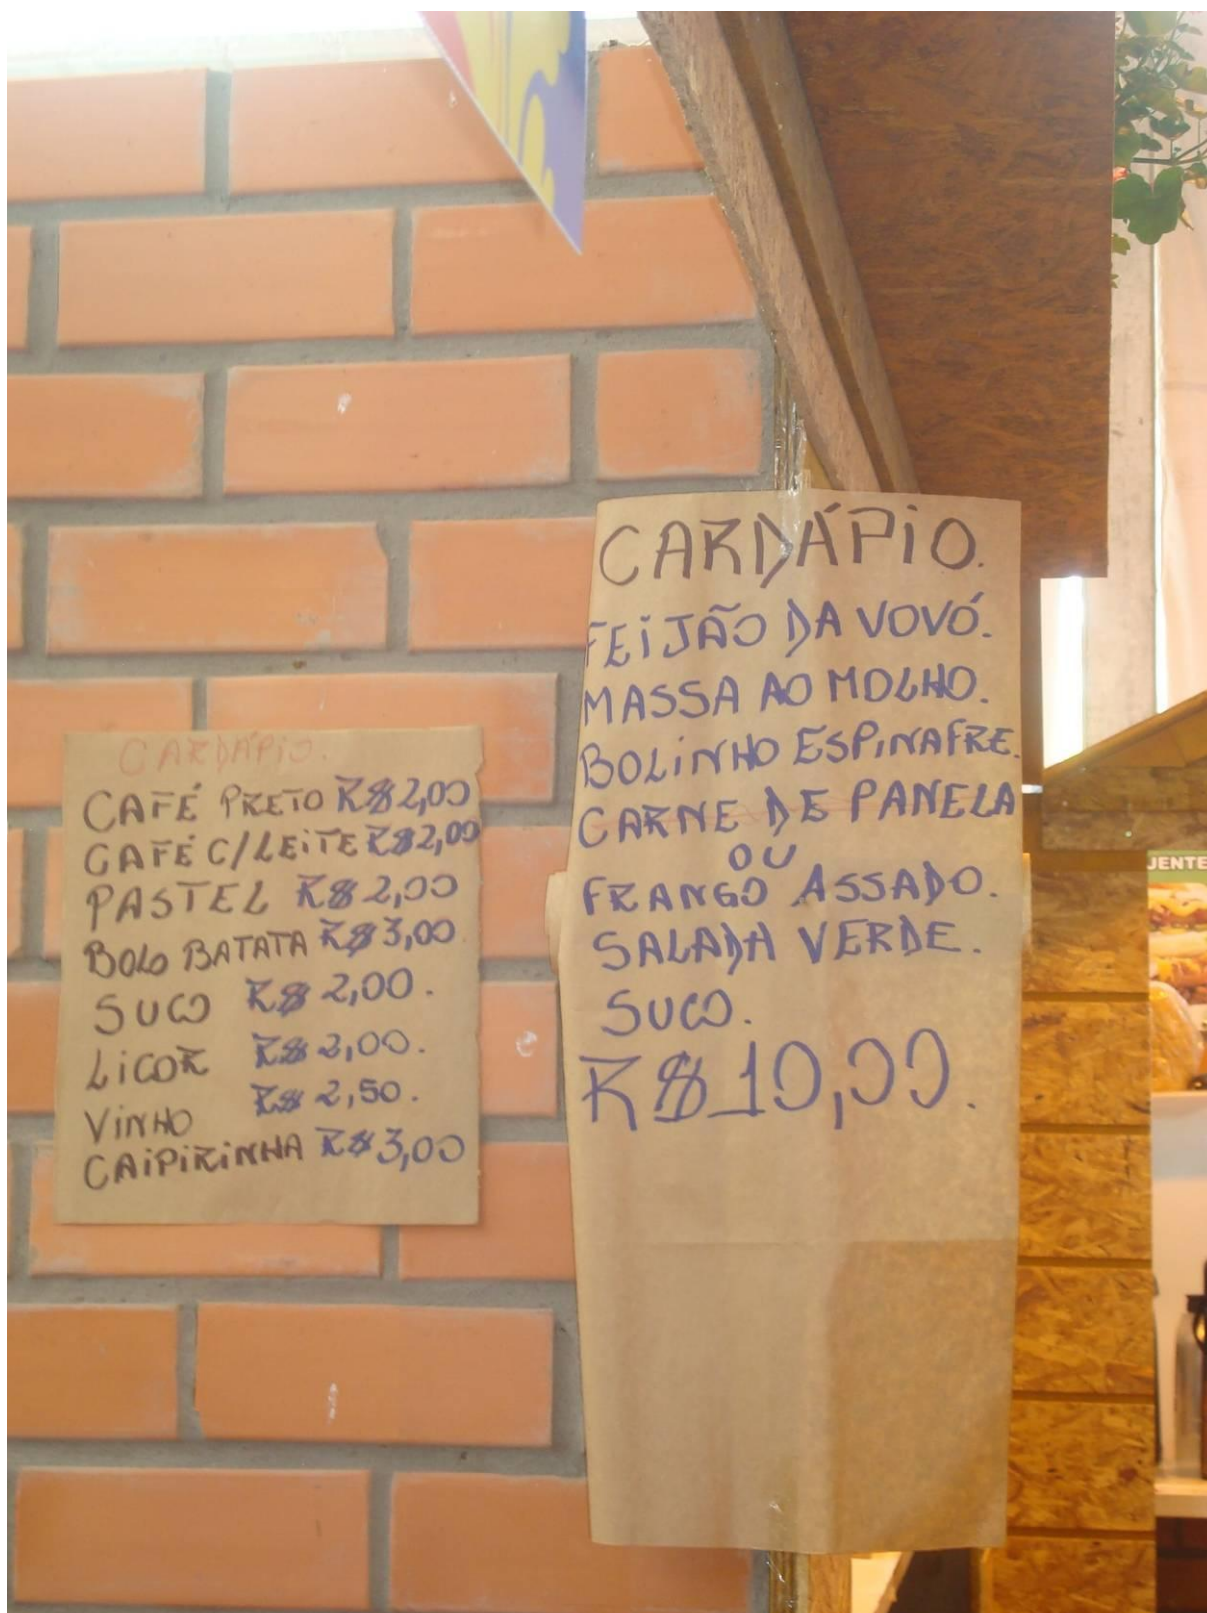 CARDÁPIO.
CAFÉ PRETO R$ 2,00
CAFÉ C/LEITE R$ 2,00
PASTEL R$ 2,00
BOLO BATATA R$ 3,00
SUCO R$ 2,00.
LICOR R$ 2,00.
VINHO R$ 2,50.
CAIPIRINHA R$ 3,00
CARDÁPIO.
FEIJÃO DA VOVÓ.
MASSA AO MOLHO.
BOLINHO ESPINAFRE.
CARNE DE PANELA
OU
FRANGO ASSADO.
SALADA VERDE.
SUCO.
R$ 10,00.
JENTE